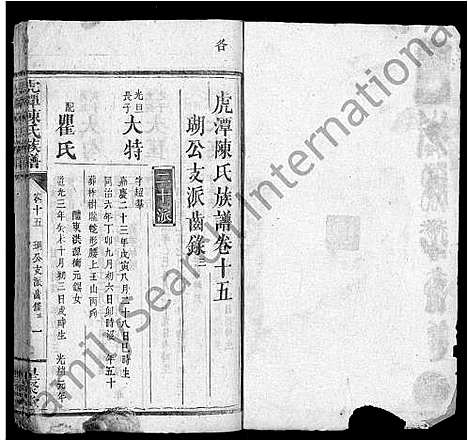 各
虎潭陳氏族譜卷十五
瑚公支派齒錄三
三十派
光日長子 大特
字超羣
嘉慶二十三年戊寅八月二十八日巳時生
同治六年丁卯九月初六日卯時歿 年五十
葬林樹 蛇形腰上壬山丙向
配 瞿氏
醴東洪源衝元謨女
道光三年癸未十月初三日戌時生 光緒元年
虎潭陳氏族譜
卷十五 瑚公支派齒錄三 一
Family Search International